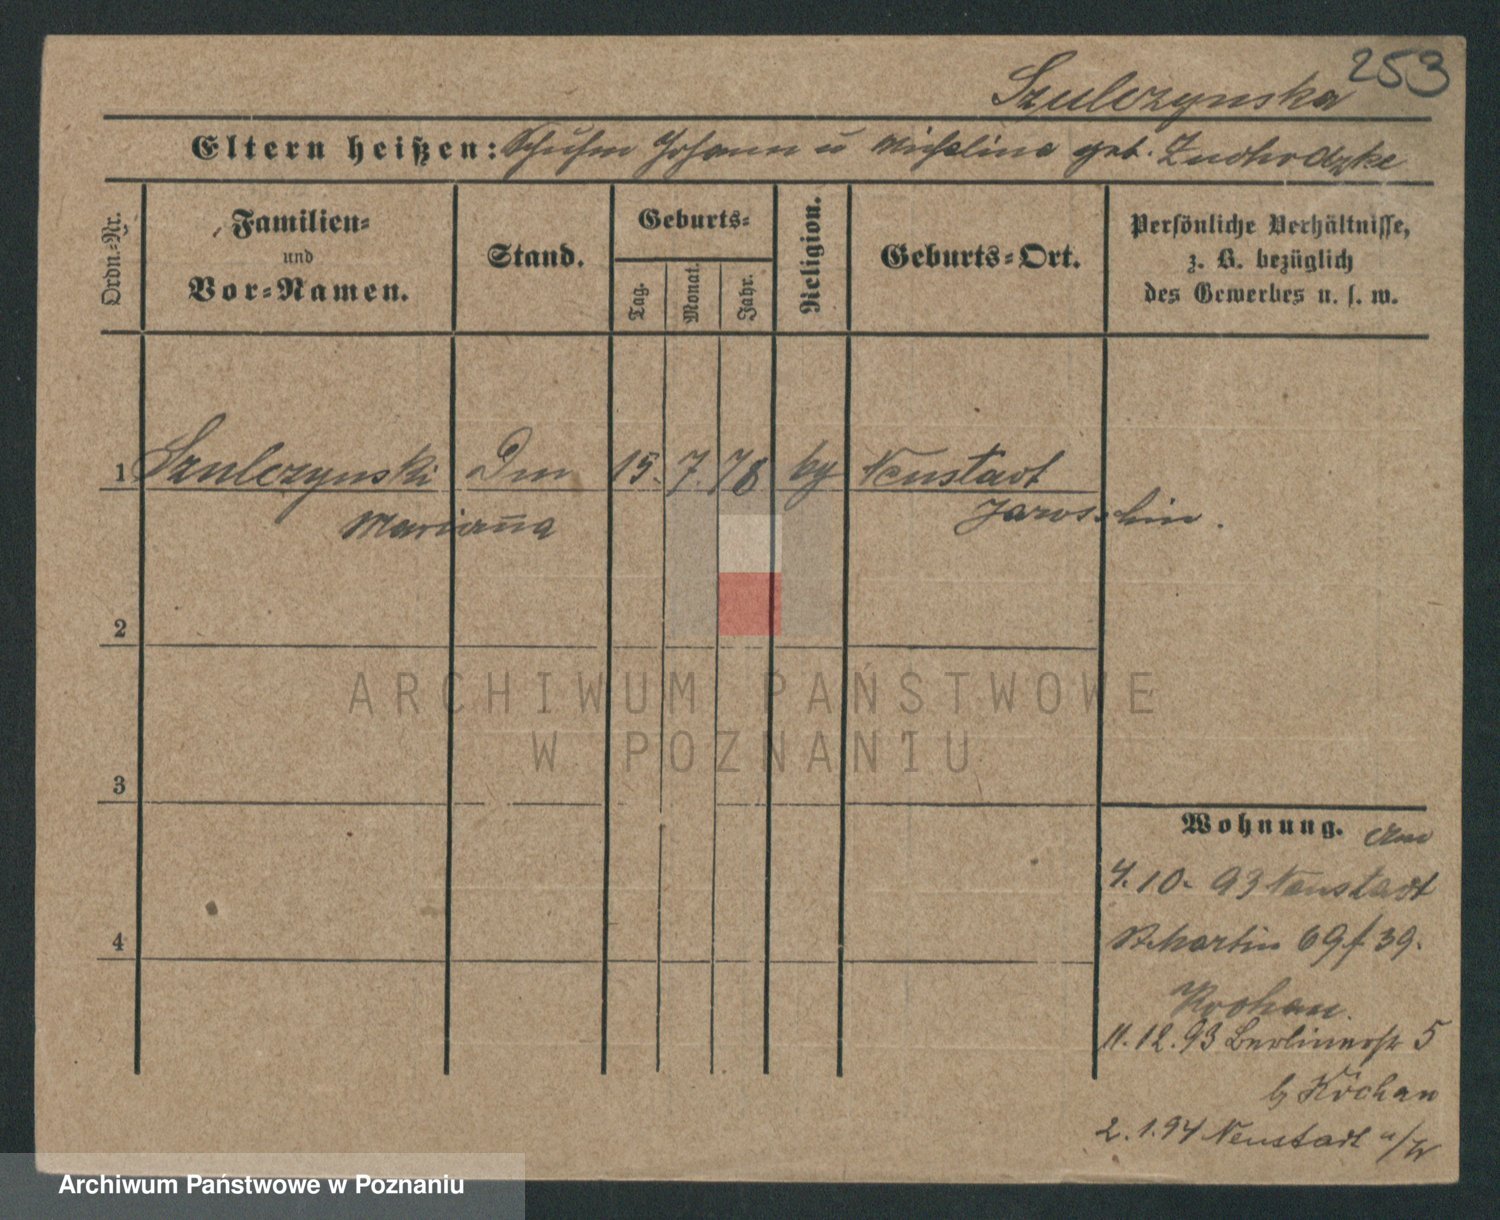 253
Szulczynska
Eltern heißen: Schuhm Johann u Michalina geb.
Ordn.-Nr.
Familien-
und
Vor-Namen.
Stand.
Geburts-
Tag.
Monat.
Jahr.
Religion.
Geburts-Ort.
Persönliche Verhältnisse,
z. B. bezüglich
des Gewerbes u. s. w.
1 Szulczynski Dm 15. 7. 78 Neustadt
Marianna Jaroschin.
2
ARCHIWUM PAŃSTWOWE
W POZNANIU
3
Wohnung.
4.10. 93 Neustadt
St Martin 69 f 39.
4
Kochan.
11.12.93 Berlinerstr 5
b Kochan
2.1.94 Neustadt a/W
Archiwum Państwowe w Poznaniu